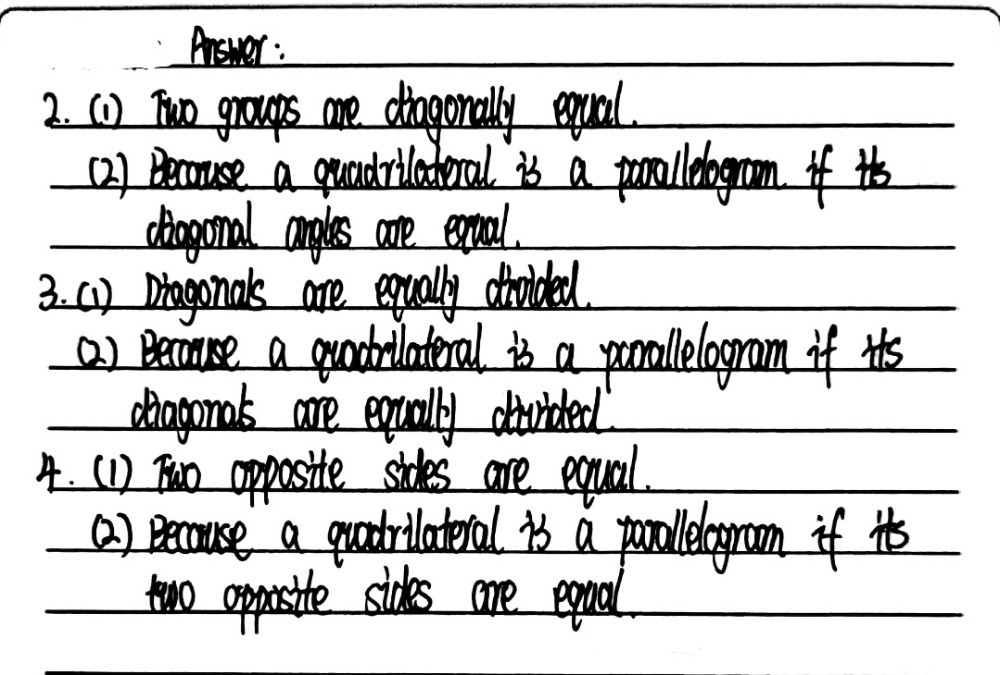 Answer:
2. (1) Two groups are diagonally equal.
(2) Because a quadrilateral is a parallelogram if its
diagonal angles are equal.
3. (1) Diagonals are equally divided.
(2) Because a quadrilateral is a parallelogram if its
diagonals are equally divided.
4. (1) Two opposite sides are equal.
(2) Because a quadrilateral is a parallelogram if its
two opposite sides are equal.